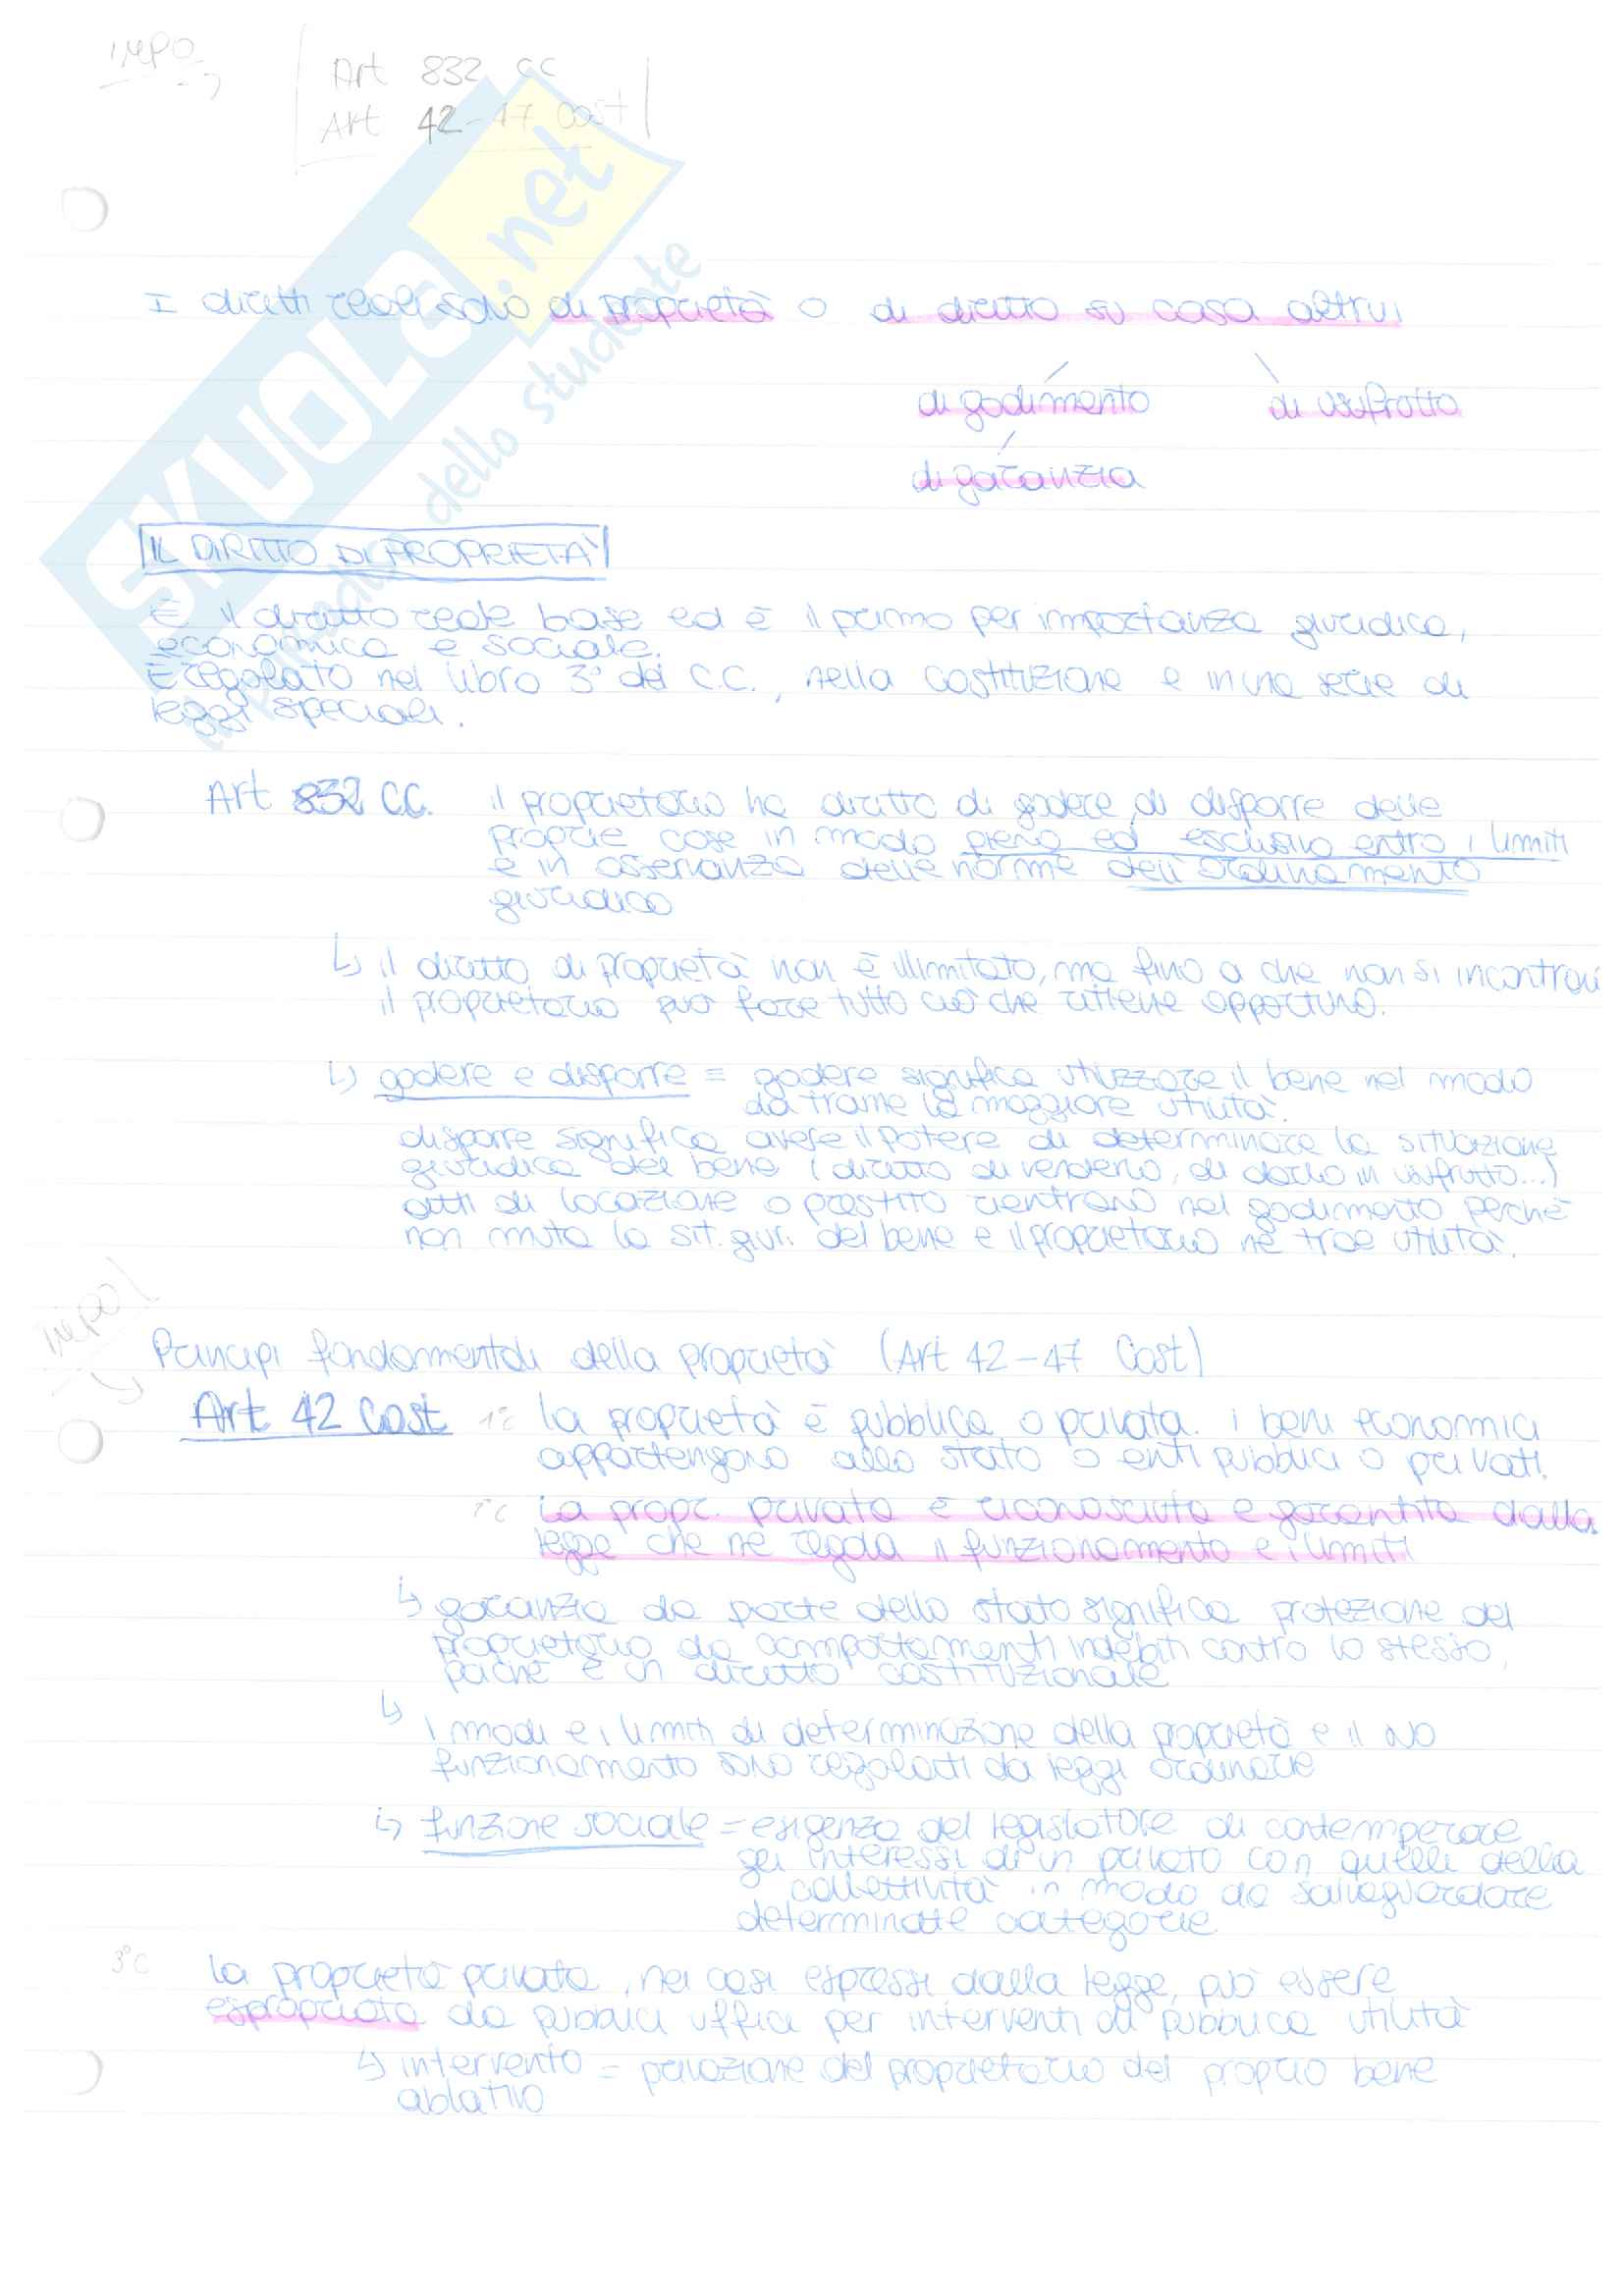 impo
Art 832 CC
Art 42-47 Cost
I diritti reali sono di proprietà o di diritto su cosa altrui
di godimento di usufrutto
di garanzia
IL DIRITTO DI PROPRIETÀ
È il diritto reale base ed è il primo per importanza giuridica,
economica e sociale.
È regolato nel libro 3° del C.C., nella costituzione e in una serie di
leggi speciali.
Art 832 C.C. il proprietario ha diritto di godere, di disporre delle
proprie cose in modo pieno ed esclusivo entro i limiti
e in osservanza delle norme dell'ordinamento
giuridico
↳ il diritto di proprietà non è illimitato, ma fino a che non si incontrai
il proprietario può fare tutto ciò che ritiene opportuno.
↳ godere e disporre = godere significa utilizzare il bene nel modo
da trarne la maggiore utilità.
disporre significa avere il potere di determinare la situazione
giuridica del bene (diritto di venderlo, di darlo in usufrutto...)
atti di locazione o prestito rientrano nel godimento perché
non muta la sit. giur. del bene e il proprietario ne trae utilità.
impo!
Principi fondamentali della proprietà (Art 42-47 Cost)
Art 42 Cost 1°c la proprietà è pubblica o privata. i beni economici
appartengono allo stato o enti pubblici o privati.
La propr. privata è riconosciuta e garantita dalla
legge che ne regola il funzionamento e i limiti
↳ garanzia da parte dello stato significa protezione del
proprietario da comportamenti indebiti contro lo stesso,
poiché è un diritto costituzionale
↳ i modi e i limiti di determinazione della proprietà e il suo
funzionamento sono regolati da leggi ordinarie
↳ funzione sociale = esigenza del legislatore di contemperare
gli interessi di un privato con quelli della
collettività in modo da salvaguardare
determinate categorie
3°C la proprietà privata, nei casi espressi dalla legge, può essere
espropriata da pubblici uffici per interventi di pubblica utilità
↳ intervento = privazione del proprietario del proprio bene
ablativo
SKUOLA.net
il paradiso dello studente